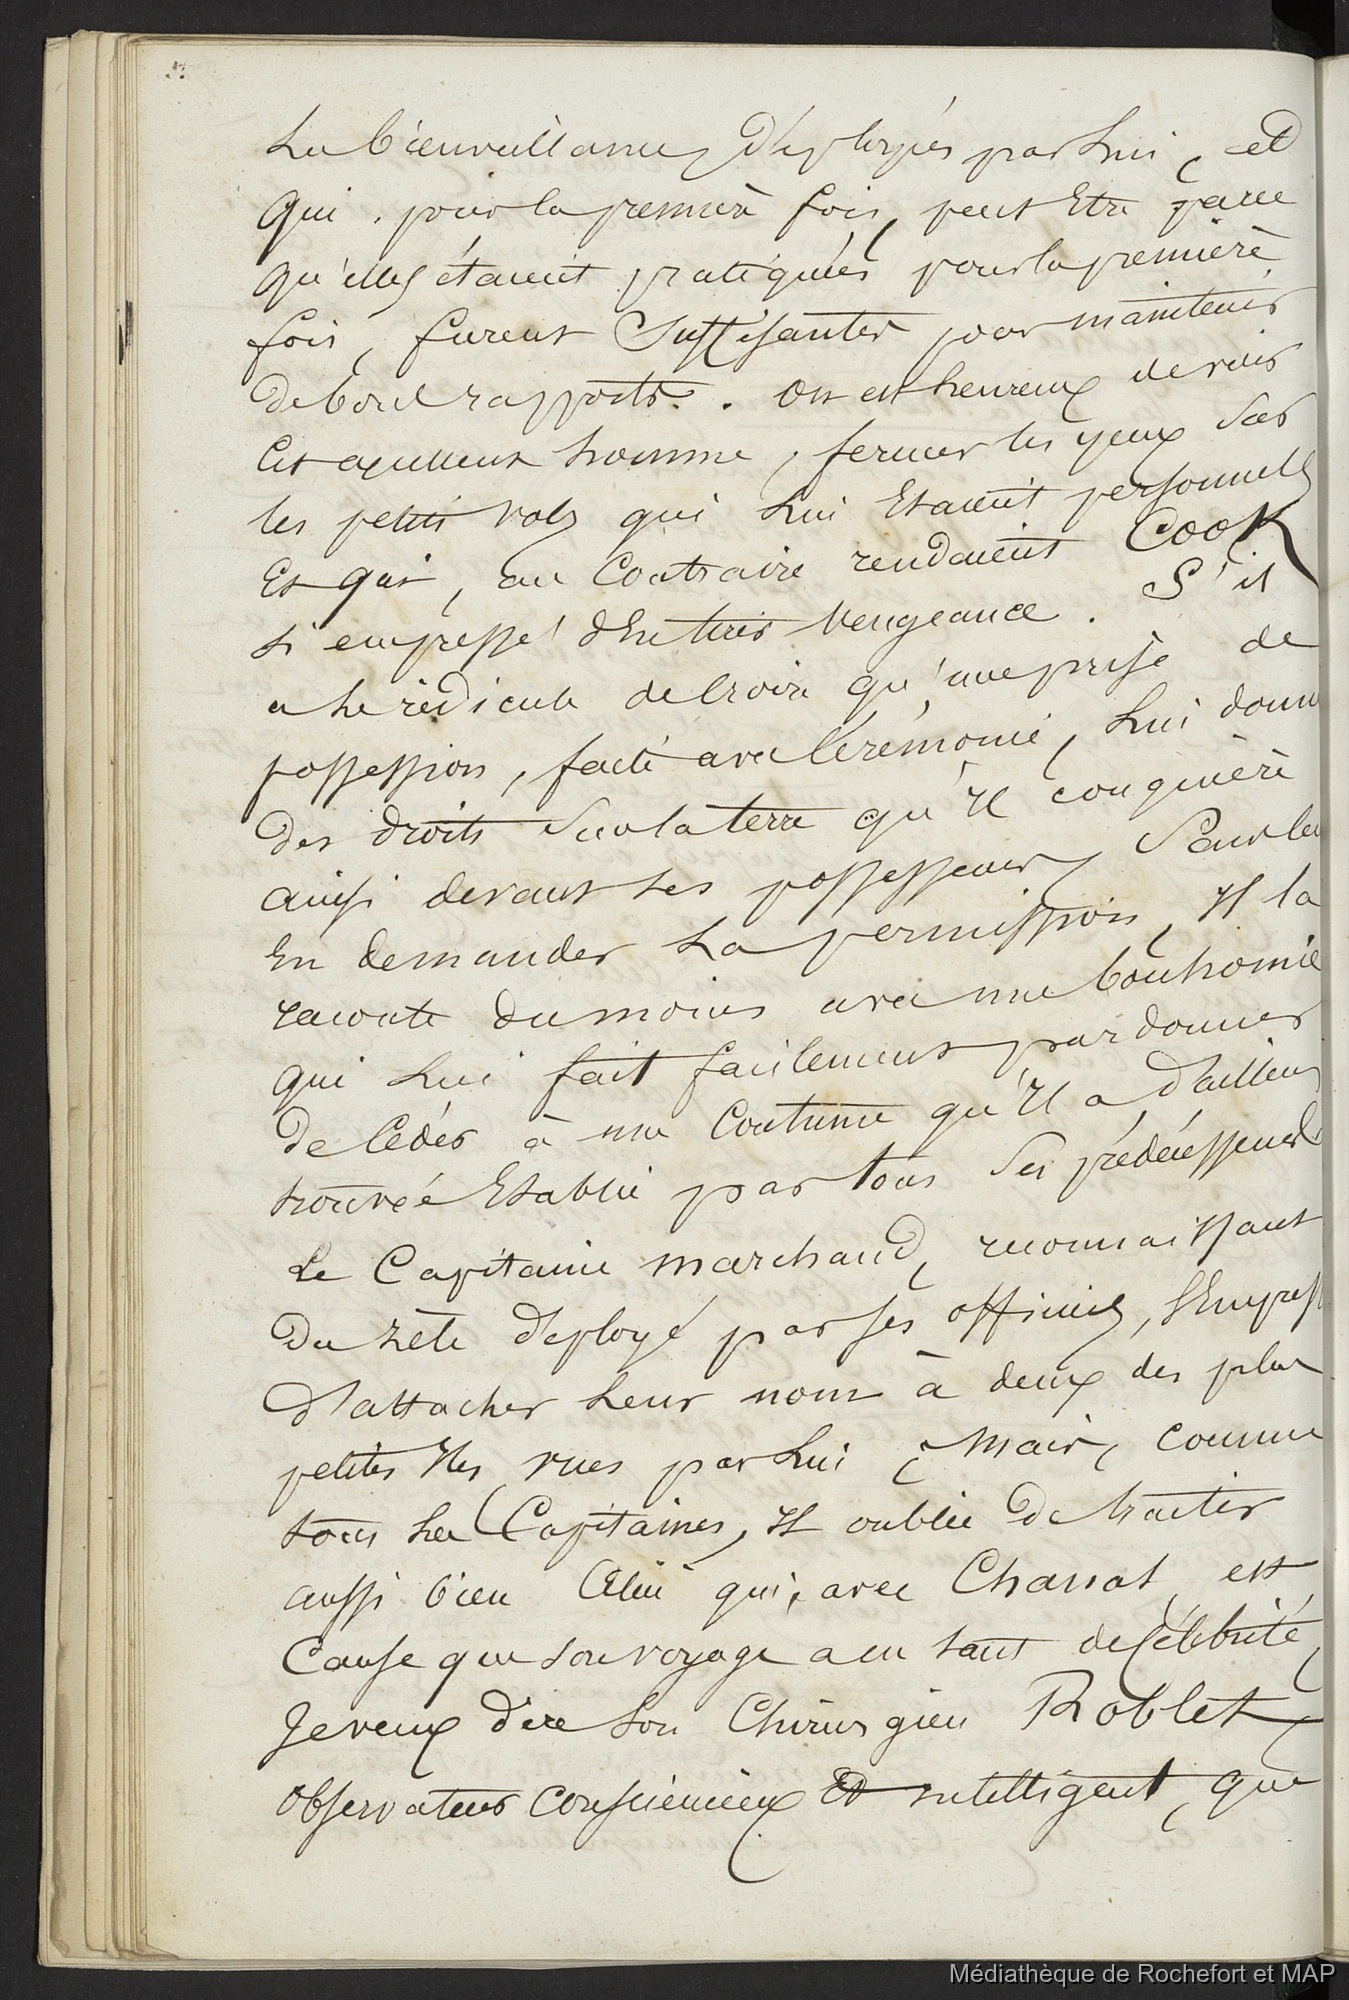 La bienveillance déployées par Lui, et
Qui, pour la premiere fois, peut Etre parce
qu'elles étaient pratiquées pour la première
fois, furent Suffisantes pour maintenir
de bons rapports. On est heureux de voir
Cet excellent homme, fermer les yeux Sur
les petits vols qui Lui Etaient personnels
Et qui, au Contraire rendaient COOK
si empressé d'En tirer Vengeance. S'il
a Le ridicule de Croire qu'une prise de
possession, faite avec Cérémonie, Lui donne
des droits Sur la terre qu'Il conquière
ainsi devant Les possesseurs, Sans leur
En demander La permission, Il la
raconte du moins avec une bonhomie
qui Lui fait facilement pardonner
de Céder à une Coutume qu'Il a d'ailleurs
trouvée Etablie par tous Ses prédécesseurs
Le Capitaine Marchand, reconnaissant
du zèle déployé par ses officiers, S'Empresse
d'attacher Leur nom à deux des plus
petites Iles vues par Lui; Mais, comme
tous Les Capitaines, Il oublie de traiter
aussi bien Celui qui, avec Chanal, est
Cause que son voyage a eu tant de Célébrité,
Je veux dire Son Chirurgien Roblet,
Observateur consciencieux Et intelligent, que
Médiathèque de Rochefort et MAP